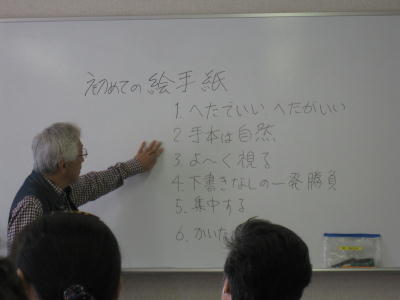 初めての絵手紙
1. へたでいい へたがいい
2 手本は自然
3. よ〜く視る
4. 下書きなしの一発勝負
5. 集中する
6. かいた